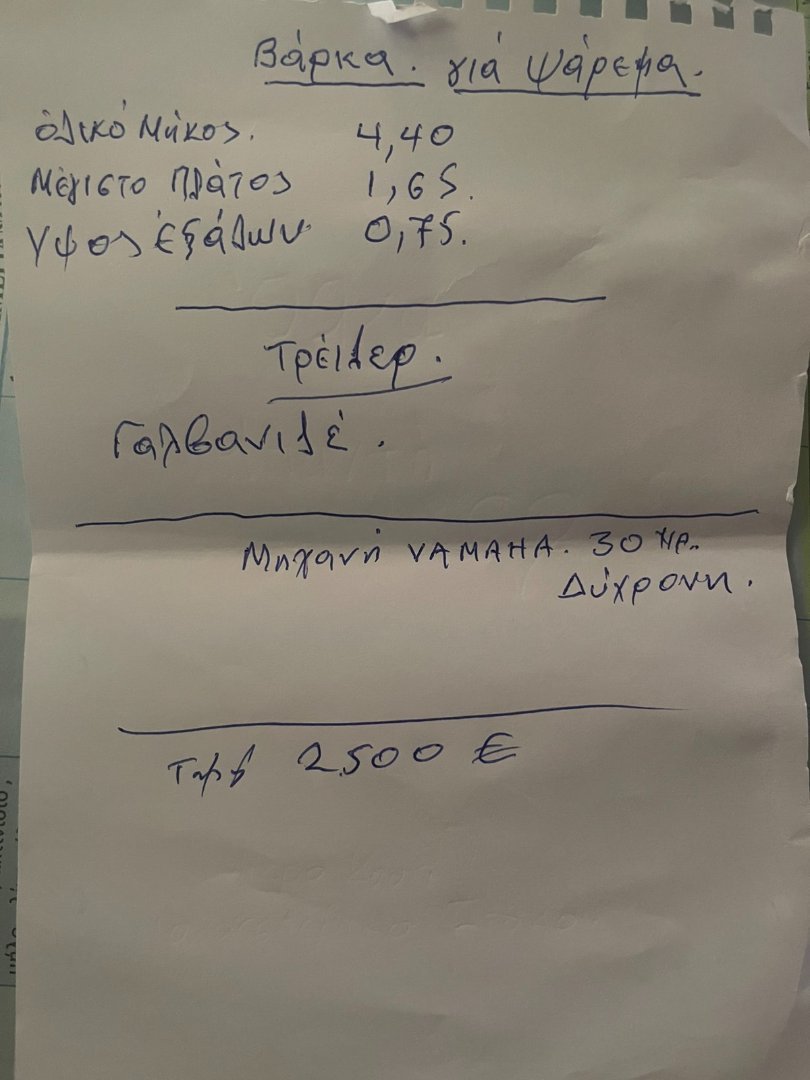 Βάρκα. γιά ψάρεμα.
ὁλικό Μήκος. 4,40
Μέγιστο Πλάτος 1,65.
Υψος ἐξάλων 0,75.
Τρέιλερ.
Γαλβανιζέ.
Μηχανή YAMAHA. 30 HP.
Δύχρονη.
2.500 €